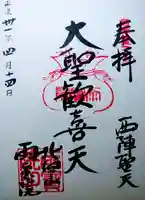 奉拝
西陣聖天
大聖歓喜天
雨宝院
平成卅一年四月十四日